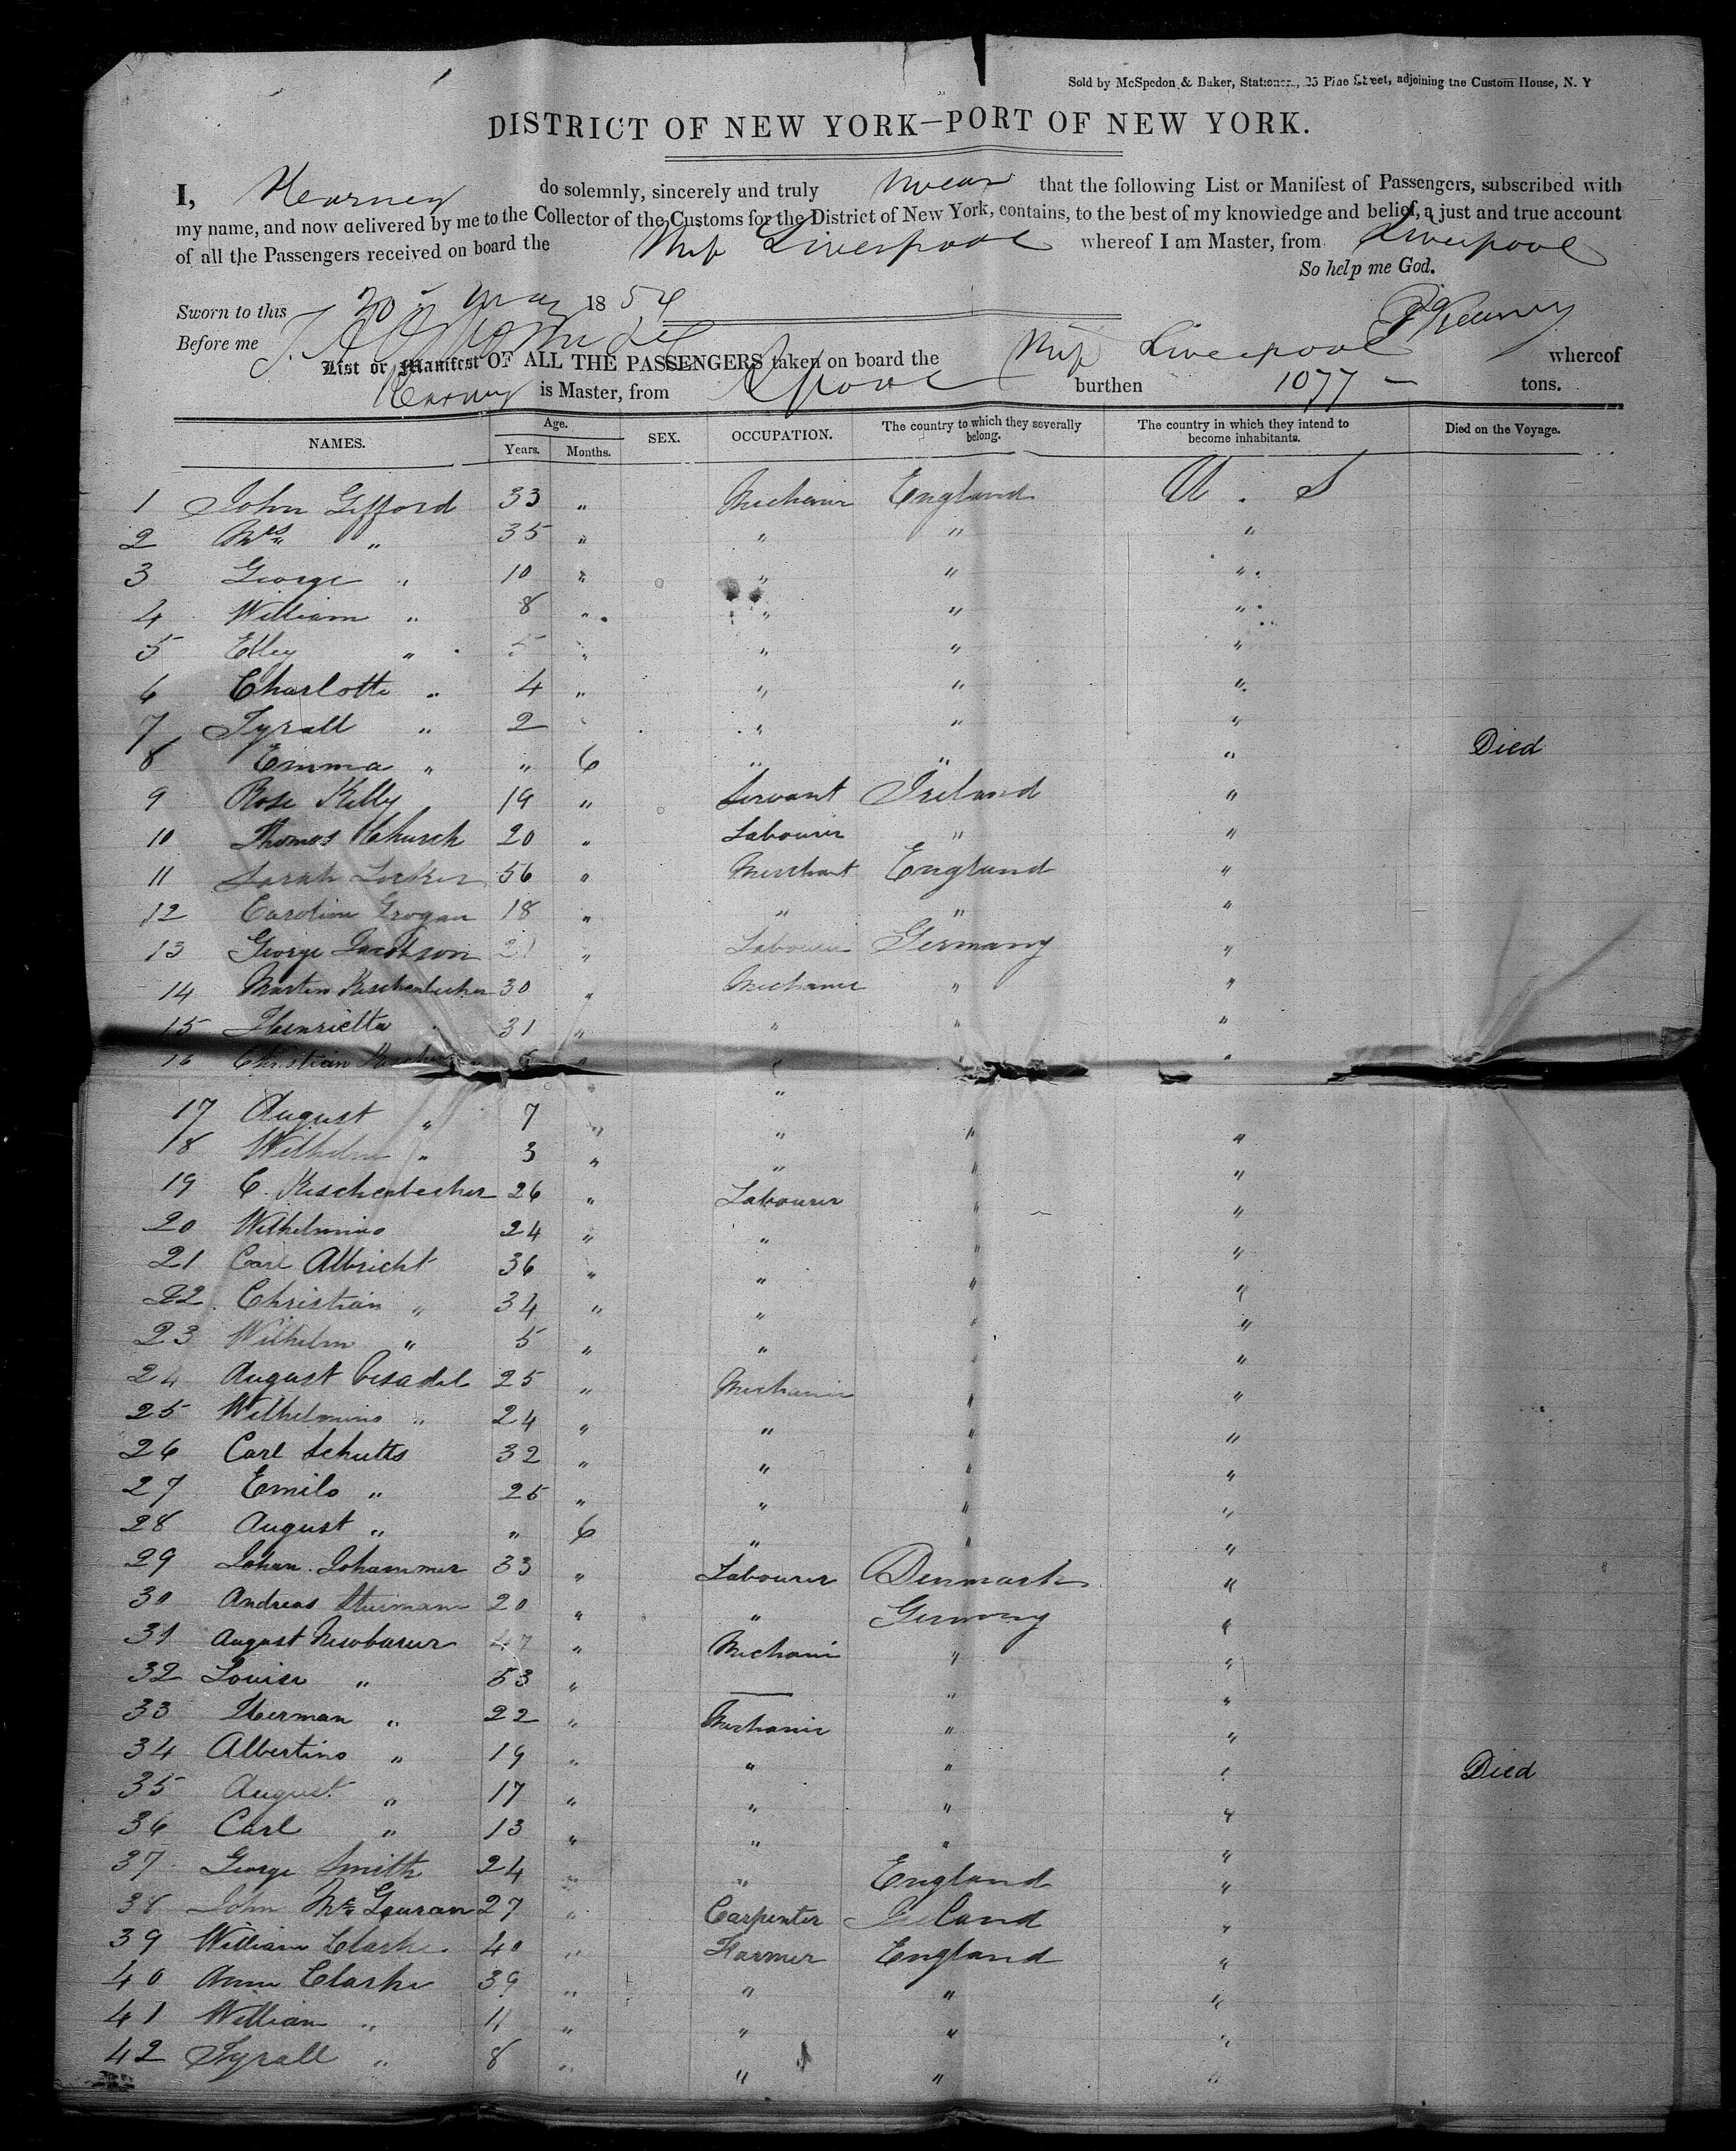 Sold by McSpedon & Baker, Stationers, 25 Pine Street, adjoining the Custom House, N. Y
DISTRICT OF NEW YORK—PORT OF NEW YORK.
I, Kearney do solemnly, sincerely and truly swear that the following List or Manifest of Passengers, subscribed with
my name, and now delivered by me to the Collector of the Customs for the District of New York, contains, to the best of my knowledge and belief, a just and true account
of all the Passengers received on board the Ship Liverpool whereof I am Master, from Liverpool
So help me God.
Sworn to this 30 May 1854
Before me
Kearney
List or Manifest OF ALL THE PASSENGERS taken on board the Ship Liverpool whereof
Kearney is Master, from Lpool burthen 1077 — tons.
NAMES. Age. Years. Months. SEX. OCCUPATION. The country to which they severally belong. The country in which they intend to become inhabitants. Died on the Voyage.
1 John Gifford 33 " Mechanic England U. S
2 Mrs " 35 " " " "
3 George " 10 " " " "
4 William " 8 " " " "
5 Elley " 5 " " " "
6 Charlotte " 4 " " " "
7 Tyrall " 2 " " " "
8 Emma " " 6 " " " Died
9 Rose Kelly 19 " Servant Ireland "
10 Thomas Church 20 " Labourer " "
11 Sarah Locker 56 " Merchant England "
12 Caroline Grogan 18 " " " "
13 George Jacobson 21 " Labourer Germany "
14 Martin Reschenbecher 30 " Mechanic " "
15 Henrietta 31 " " " "
16 Christian " "
17 August " 7 " " " "
18 Wilhelm " 3 " " " "
19 C. Reschenbecher 26 " Labourer " "
20 Wilhelmina 24 " " " "
21 Carl Albricht 36 " " " "
22 Christian " 34 " " " "
23 Wilhelm " 5 " " " "
24 August 25 " Mechanic " "
25 Wilhelmina " 24 " " " "
26 Carl Schults 32 " " " "
27 Emila " 25 " " " "
28 August " " 6 " " "
29 Johan Johammer 33 " Labourer Denmark "
30 Andreas Sturmann 20 " " Germany "
31 August Newbaurer 47 " Mechanic " "
32 Louisa " 53 " — " "
33 Herman " 22 " Mechanic " "
34 Albertina " 19 " " " " Died
35 August " 17 " " " "
36 Carl " 13 " " " "
37 George Smith 24 " " England "
38 John McGauran 27 " Carpenter Ireland "
39 William Clarke 40 " Farmer England "
40 Ann Clarke 39 " " " "
41 William " 11 " " " "
42 Tyrall " 8 " " " "